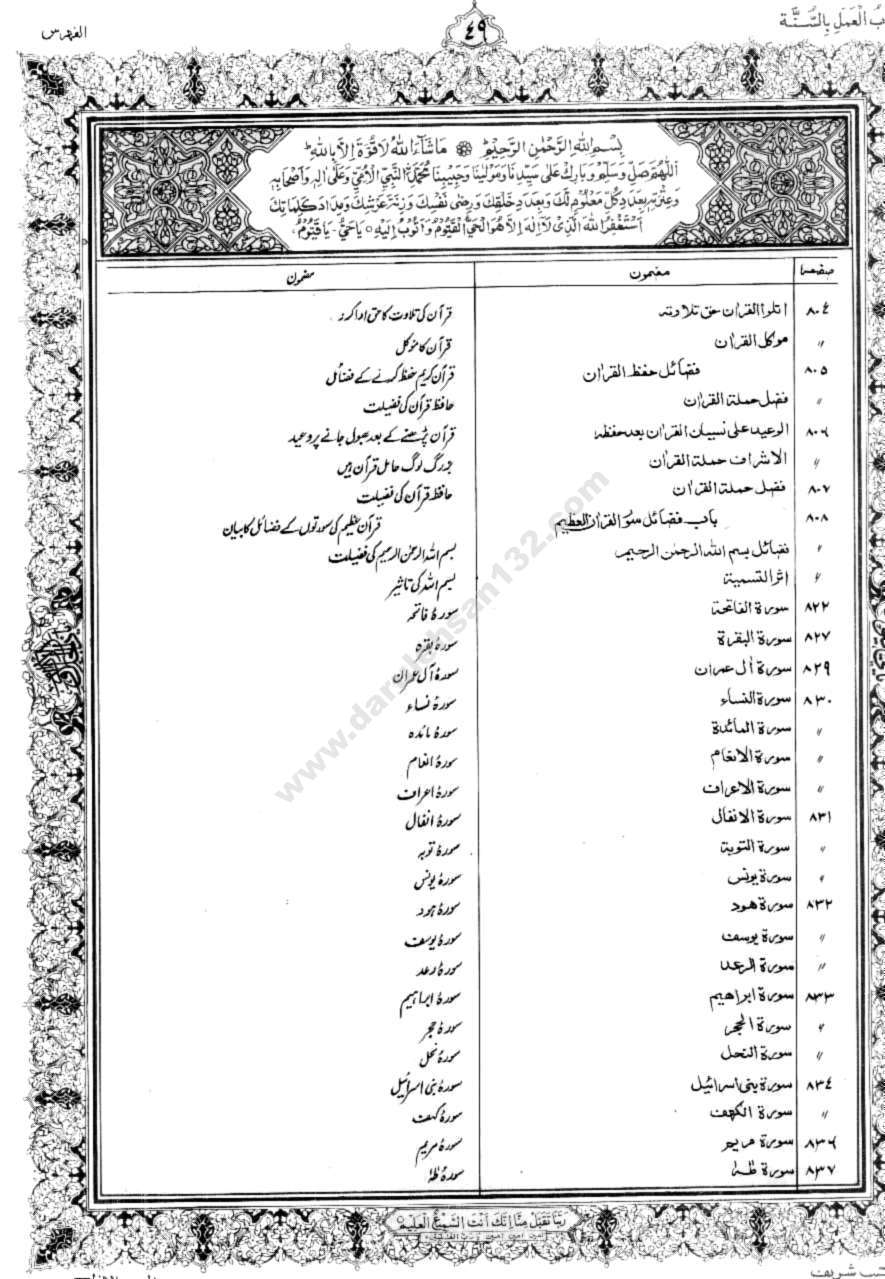 بُ الْعَمَلِ بِالسُّنَّة
٤٩
الفهرس
بِسْمِ اللهِ الرَّحْمٰنِ الرَّحِيْمِ مَاشَآءَ اللهُ لَا قُوَّةَ اِلَّا بِاللهِ
اَللّٰهُمَّ صَلِّ وَسَلِّمْ وَبَارِكْ عَلٰى سَيِّدِنَا وَمَوْلٰينَا وَحَبِيْبِنَا مُحَمَّدِنِ النَّبِيِّ الْاُمِّيِّ وَعَلٰى اٰلِهٖ وَاَصْحَابِهٖ
وَعِتْرَتِهٖ بِعَدَدِ كُلِّ مَعْلُوْمٍ لَّكَ وَبِعَدَدِ خَلْقِكَ وَرِضٰى نَفْسِكَ وَزِنَةَ عَرْشِكَ وَمِدَادَ كَلِمَاتِكَ
اَسْتَغْفِرُ اللهَ الَّذِىْ لَآ اِلٰهَ اِلَّا هُوَ الْحَىُّ الْقَيُّوْمُ وَاَتُوْبُ اِلَيْهِ ○ يَاحَىُّ يَاقَيُّوْمُ
صفحہ مضمون مضمون
٨٠٤ اتلوا القراٰن حق تلاوتہ قرآن کی تلاوت کا حق ادا کرو
〃 موکل القراٰن قرآن کا مؤکل
٨٠٥ فضائل حفظ القراٰن قرآن کریم حفظ کرنے کے فضائل
〃 فضل حملة القراٰن حافظ قرآن کی فضیلت
٨٠٦ الوعید علی نسیان القراٰن بعد حفظہ قرآن پڑھنے کے بعد بھول جانے پر وعید
〃 الاشراف حملة القراٰن بزرگ لوگ حامل قرآن ہیں
٨٠٧ فضل حملة القراٰن حافظ قرآن کی فضیلت
٨٠٨ باب فضائل سور القراٰن العظیم قرآن عظیم کی سورتوں کے فضائل کا بیان
〃 فضائل بسم الله الرحمٰن الرحیم بسم اللہ الرحمٰن الرحیم کی فضیلت
〃 اثر التسمیة بسم اللہ کی تاثیر
٨٢٢ سورة الفاتحة سورۂ فاتحہ
٨٢٧ سورة البقرة سورۂ بقرہ
٨٢٩ سورة اٰل عمران سورۂ آل عمران
٨٣٠ سورة النساء سورۂ نساء
〃 سورة المائدة سورۂ مائدہ
〃 سورة الانعام سورۂ انعام
〃 سورة الاعراف سورۂ اعراف
٨٣١ سورة الانفال سورۂ انفال
〃 سورة التوبة سورۂ توبہ
〃 سورة یونس سورۂ یونس
٨٣٢ سورة هود سورۂ ہود
〃 سورة یوسف سورۂ یوسف
〃 سورة الرعد سورۂ رعد
٨٣٣ سورة ابراهیم سورۂ ابراہیم
〃 سورة الحجر سورۂ حجر
〃 سورة النحل سورۂ نحل
٨٣٤ سورة بنی اسرائیل سورۂ بنی اسرائیل
〃 سورة الکهف سورۂ کہف
٨٣٦ سورة مریم سورۂ مریم
٨٣٧ سورة طٰهٰ سورۂ طٰہٰ
رَبَّنَا تَقَبَّلْ مِنَّا اِنَّكَ اَنْتَ السَّمِيْعُ الْعَلِيْمُ
www.darulehsan132.com